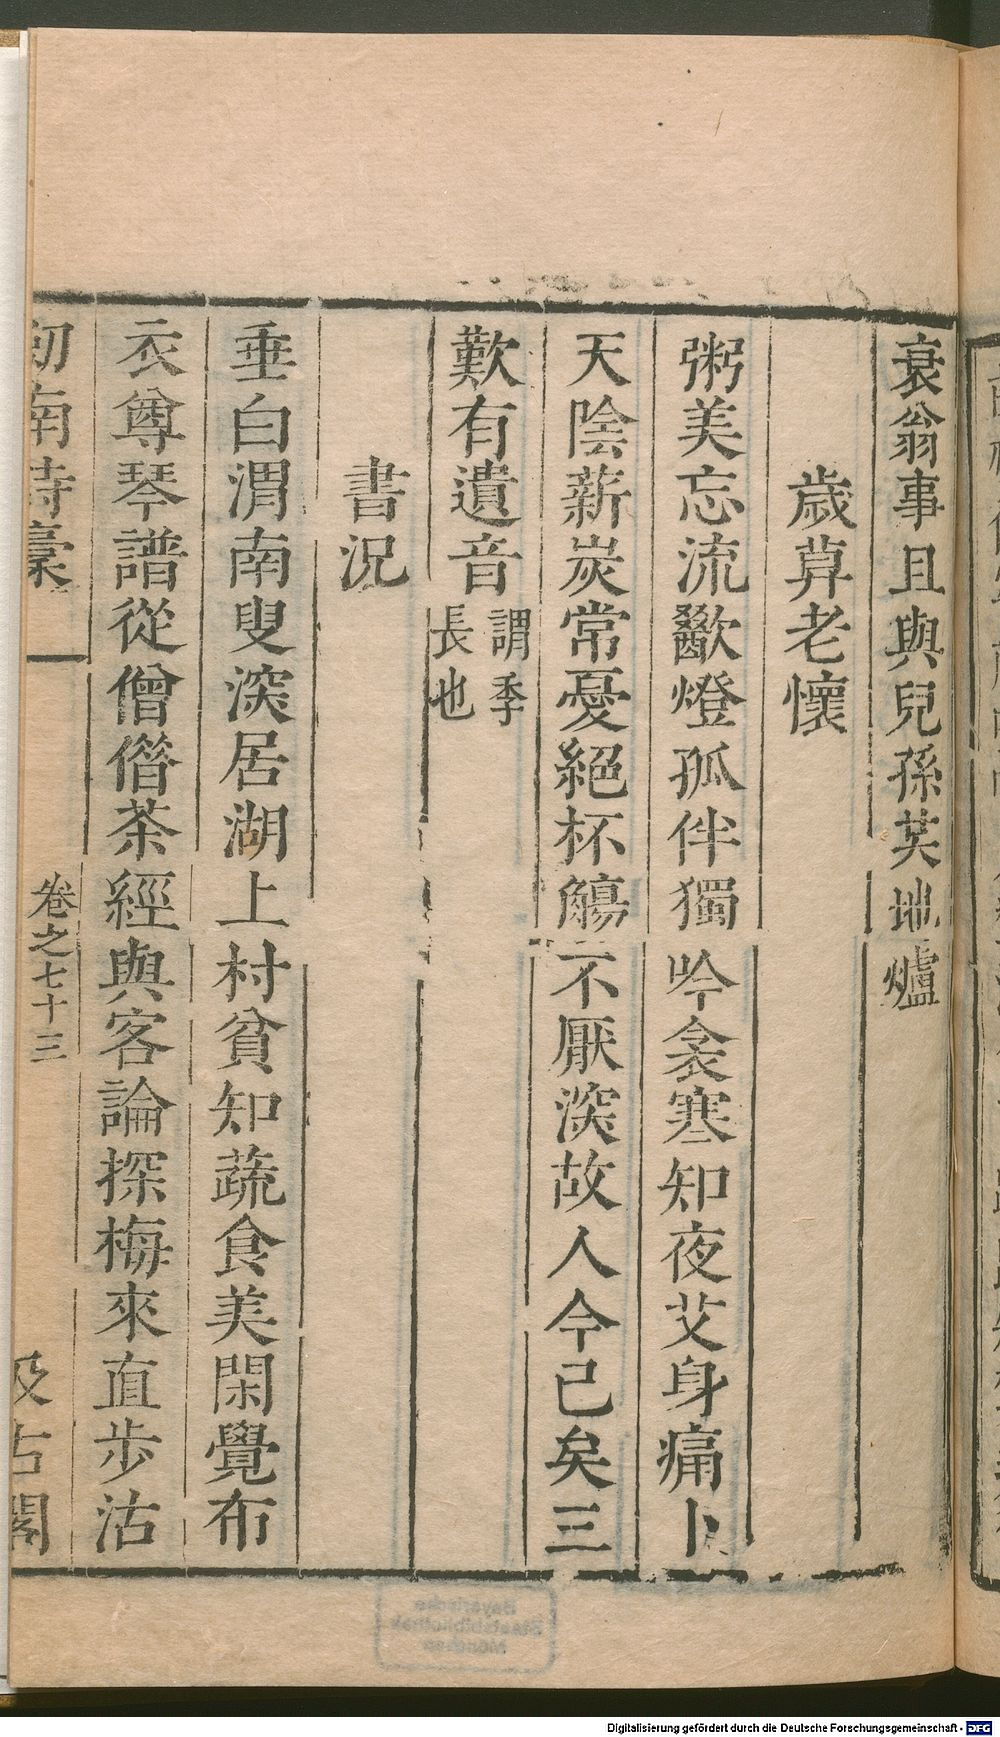 衰翁事且與兒孫芺地爐
歲莫老懷
粥美忘流歠燈孤伴獨吟衾寒知夜艾身痛卜
天陰薪炭常憂絕杯觴不厭深故人今已矣三
歎有遺音謂季
長也
書況
垂白渭南叟深居湖上村貧知蔬食美閑覺布
衣尊琴譜從僧借茶經與客論探梅來直步沽
劒南詩稾
卷之七十三
汲古閣
Bayerische
Staatsbibliothek
München
Digitalisierung gefördert durch die Deutsche Forschungsgemeinschaft - DFG